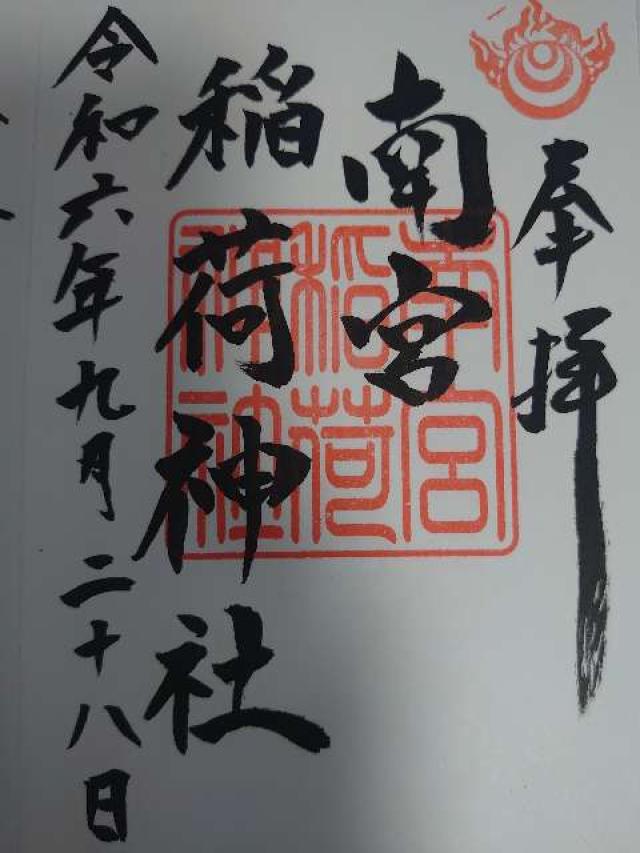 奉拝
南宮
稲荷神社
令和六年九月二十八日
南宮
稲荷
神社